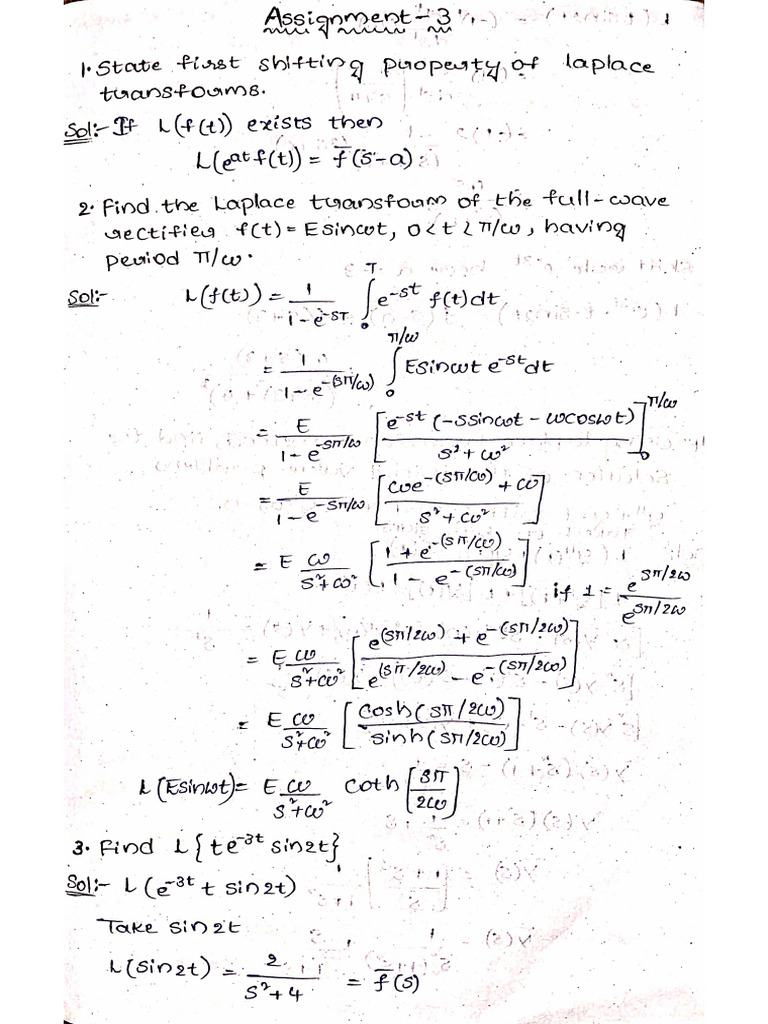 Assignment-3
1. State first shifting property of laplace
transforms.
Sol:- If L(f(t)) exists then
L(e^at f(t)) = f̅(s-a)
2. Find the Laplace transform of the full-wave
rectifier f(t) = Esinωt, 0<t<π/ω, having
period π/ω.
Sol:- L(f(t)) = 1/(1-e^-sT) ∫_0^T e^-st f(t)dt
= 1/(1-e^-(sπ/ω)) ∫_0^π/ω Esinωt e^-st dt
= E/(1-e^-sπ/ω) [e^-st (-ssinωt - ωcosωt)/(s²+ω²)]_0^π/ω
= E/(1-e^-sπ/ω) [(ωe^-(sπ/ω) + ω)/(s²+ω²)]
= E ω/(s²+ω²) [(1+e^-(sπ/ω))/(1-e^-(sπ/ω))] if 1 = e^sπ/2ω/e^sπ/2ω
= E ω/(s²+ω²) [(e^(sπ/2ω) + e^-(sπ/2ω))/(e^(sπ/2ω) - e^-(sπ/2ω))]
= E ω/(s²+ω²) [cosh(sπ/2ω)/sinh(sπ/2ω)]
L(Esinωt) = E ω/(s²+ω²) coth[sπ/2ω]
3. Find L{te^-3t sin2t}
Sol:- L(e^-3t t sin2t)
Take sin2t
L(sin2t) = 2/(s²+4) = f̅(s)